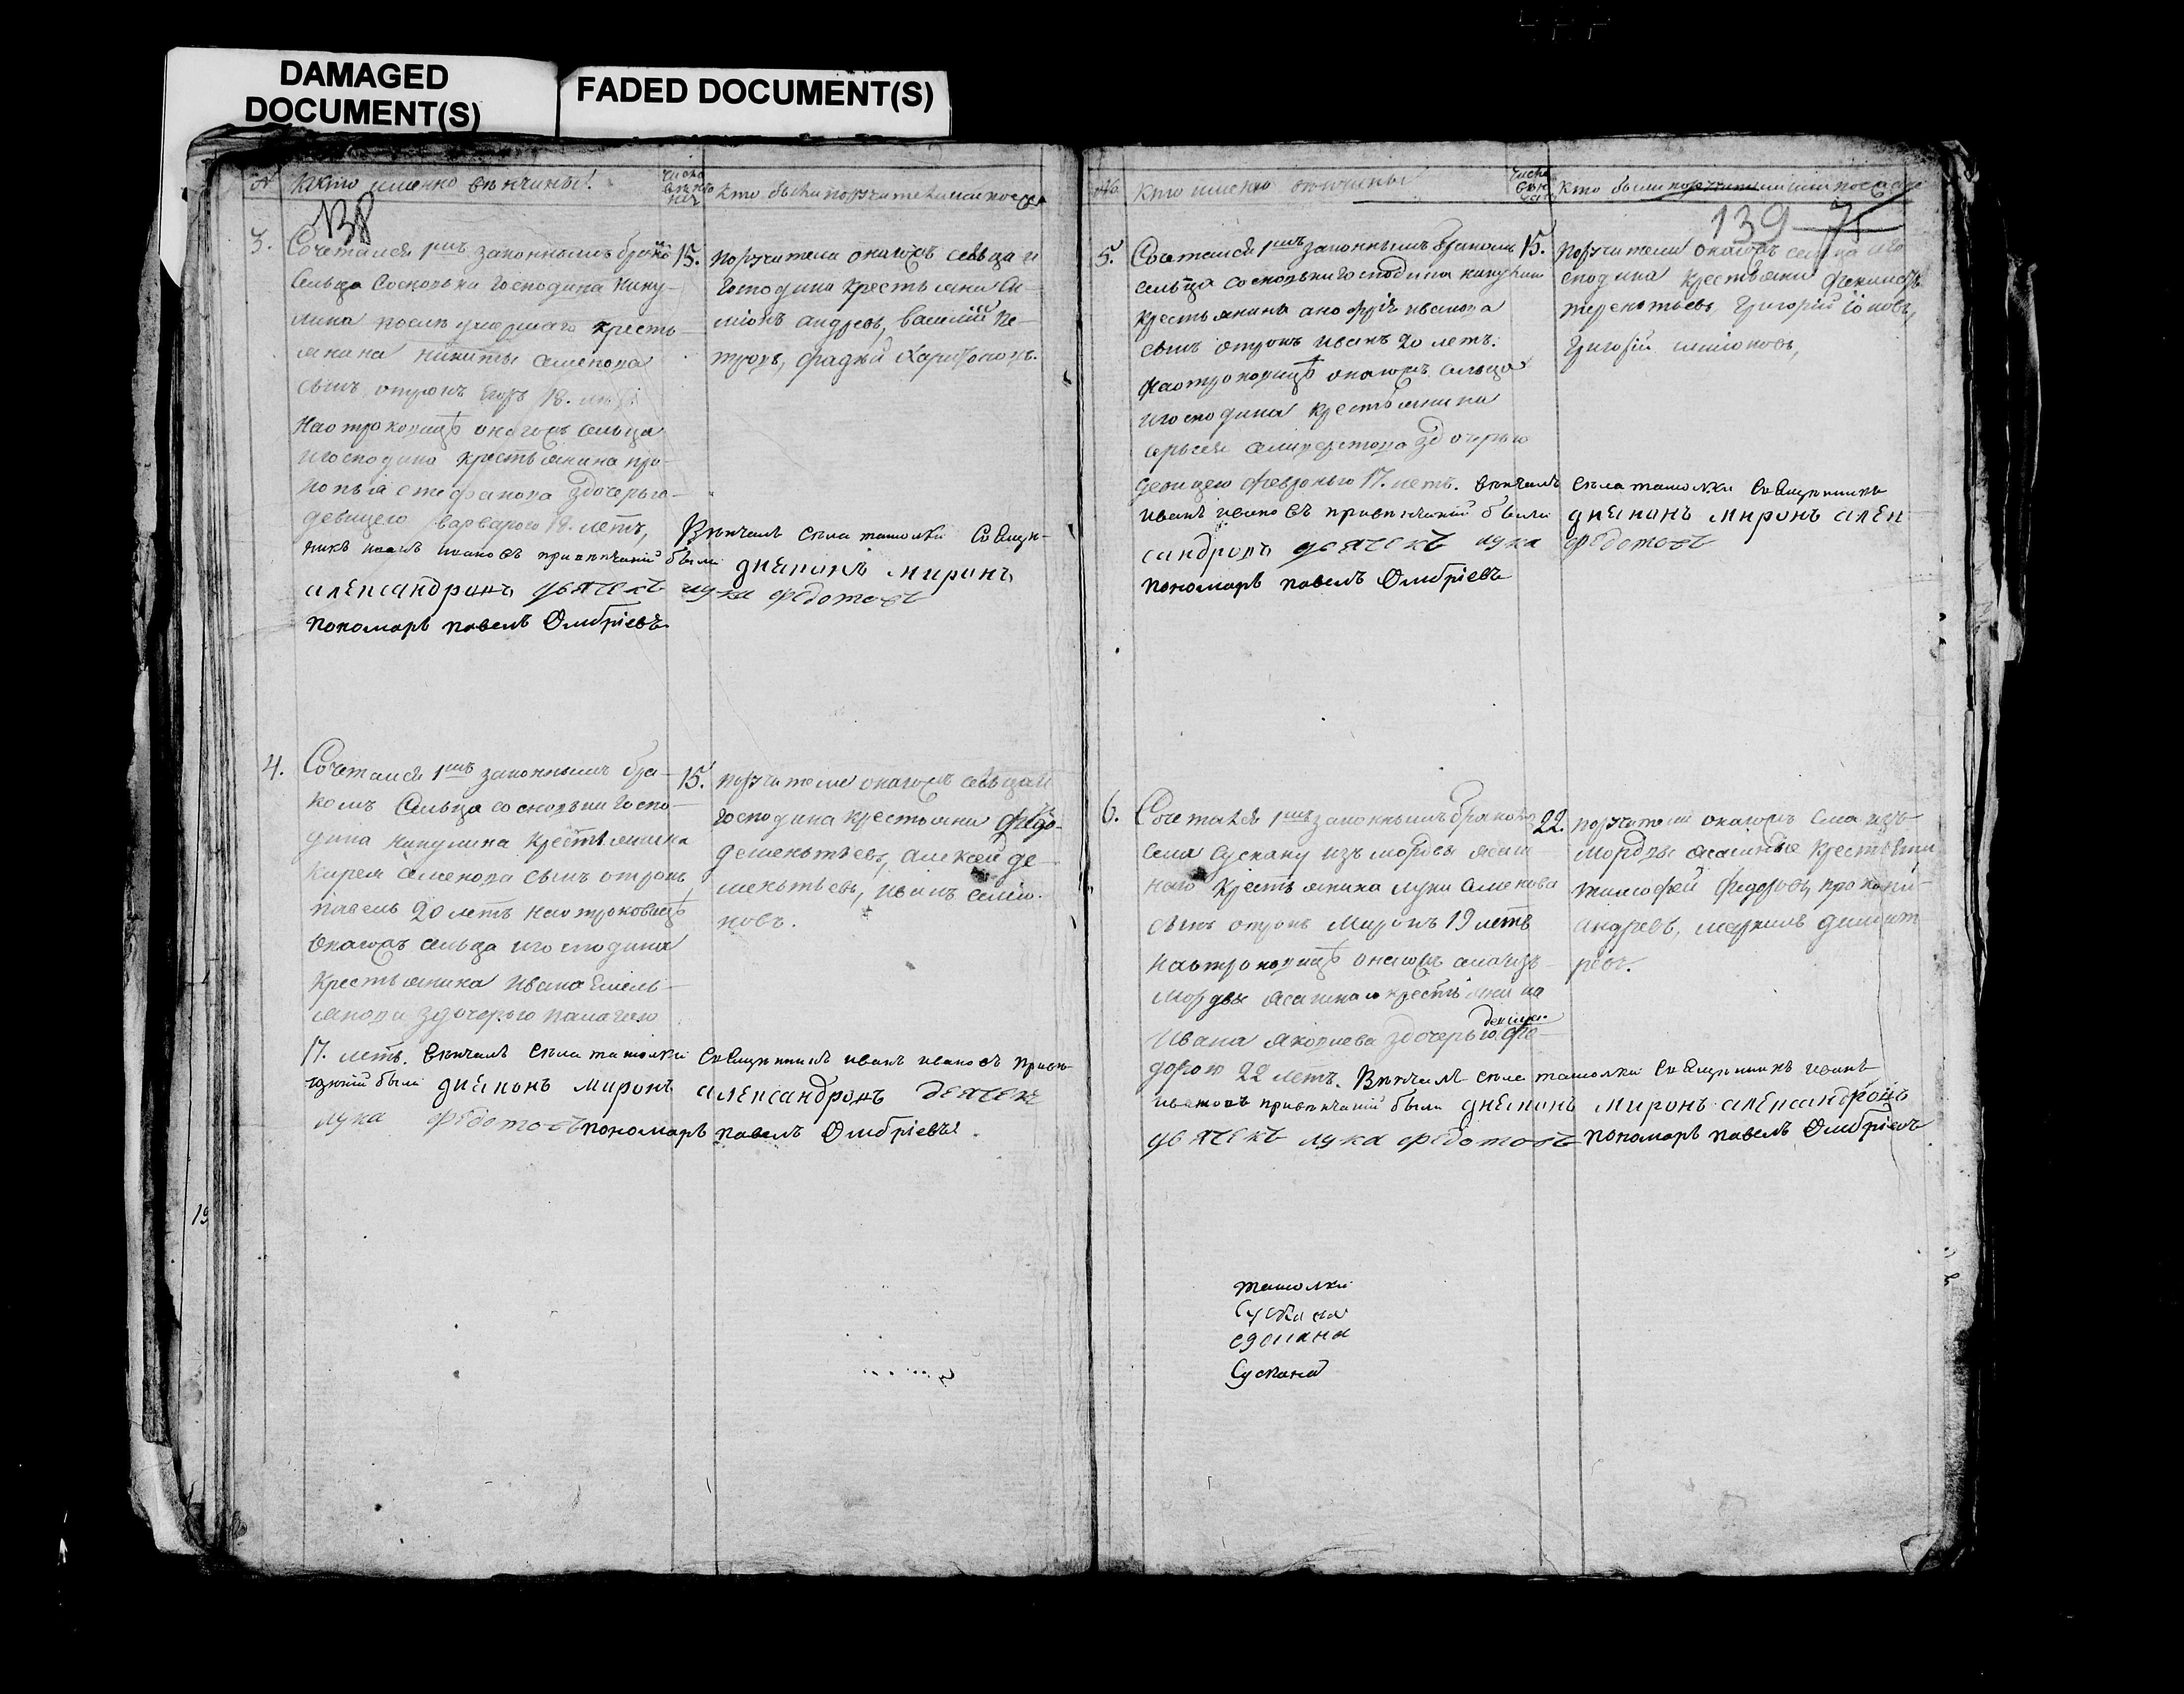 DAMAGED
DOCUMENT(S)
FADED DOCUMENT(S)
№ кто именно венчины.
число венч
кто были поручители или поезж
138
3. Сочетался 1мъ законнымъ брако
сельца Сосновки Господина Нику-
лина после умершаго кресть-
янина никиты семенова
сынъ отрокъ Егоръ 18. летъ
На отроковице онагожъ сельца
и господина крестьянина про-
копья стефанова здочерью
девицею варварою 18. летъ,
15. поручители онагожъ сельца и
Господина крестьяне Си-
мионъ андревъ, василий Пе-
тровъ, фадей Харитоновъ.
Венчалъ села ташолки Священ-
никъ иванъ ивановъ привенчании были диаконъ миронъ
александровъ дьячекъ лука федотовъ
пономарь павелъ Димтріевъ
4. Сочетался 1мъ законнымъ бра-
комъ Сельца сосновки Госпо-
дина никулина крестьянина
кирея семенова сынъ отрокъ
павелъ 20 летъ на отроковице
онагожъ сельца и господина
крестьянина ивана Емель-
янова здочерью палагею
15. поручители онагожъ сельца и
Господина крестьяне Федо-
дементьевъ, алексей де-
ментьевъ, иванъ симио-
новъ.
17. летъ. венчалъ села ташолки Священникъ иванъ ивановъ привен-
чании были диаконъ миронъ александровъ дьячекъ
лука федотовъ пономарь павелъ Димтріевъ
19
№ кто именно венчины
число венч
кто были поручители или поезж
139 7
5. Сочетался 1мъ законнымъ бракомъ
сельца сосновки господина никулина
крестьянина анофрия иванова
сынъ отрокъ иванъ 20 летъ.
На отроковице онагожъ сельца
и господина крестьянина
сергея здочерью
девицею февронью 17. летъ.
15. поручители онагожъ сельца и го
сподина крестьяне
терентьевъ, Григорий іоновъ,
Григорий симионовъ,
венчалъ села ташолки Священникъ
иванъ ивановъ привенчании были диаконъ миронъ алек
сандровъ дьячекъ лука федотовъ
пономарь павелъ Димтріевъ
6. Сочетался 1мъ законнымъ бракомъ
села Сускану изъ мордвы ясаш
наго крестьянина луки семенова
сынъ отрокъ Миронъ 19 летъ
на отроковице онагожъ села изъ
мордвы ясашнаго крестьянина
Ивана яковлева здочерью девицею фе-
дорою 22 летъ.
22. поручители онагожъ села изъ
мордвы ясашные крестьяни
тимофей федоровъ, прокопи-
андревъ, маркелъ димит
ревъ.
Венчалъ села ташолки Священникъ иванъ
ивановъ привенчании были диаконъ миронъ александровъ
дьячекъ лука федотовъ пономарь павелъ Димтріевъ
ташолки
Сускана
Сускана